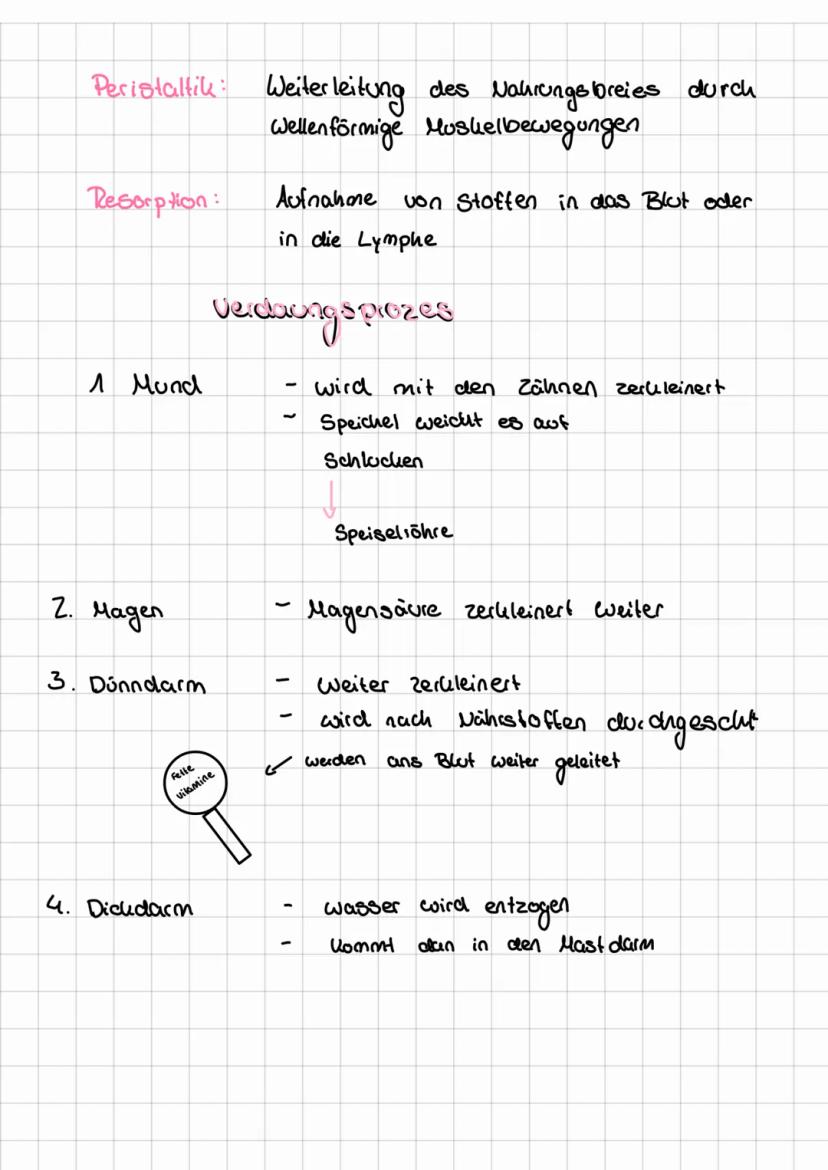 Peristaltik: Weiterleitung des Nahrungsbreies durch
wellenförmige Muskelbewegungen
Resorption: Aufnahme von Stoffen in das Blut oder
in die Lymphe
Verdauungsprozes
1 Mund - wird mit den Zähnen zerkleinert
- Speichel weicht es auf
Schlucken
↓
Speiseröhre
2. Magen - Magensäure zerkleinert weiter
3. Dünndarm - weiter zerkleinert
- wird nach Nährstoffen durchgescht
↙ werden ans Blut weiter geleitet
Fette
Vitamine
4. Dickdarm - wasser wird entzogen
- kommt dan in den Mastdarm